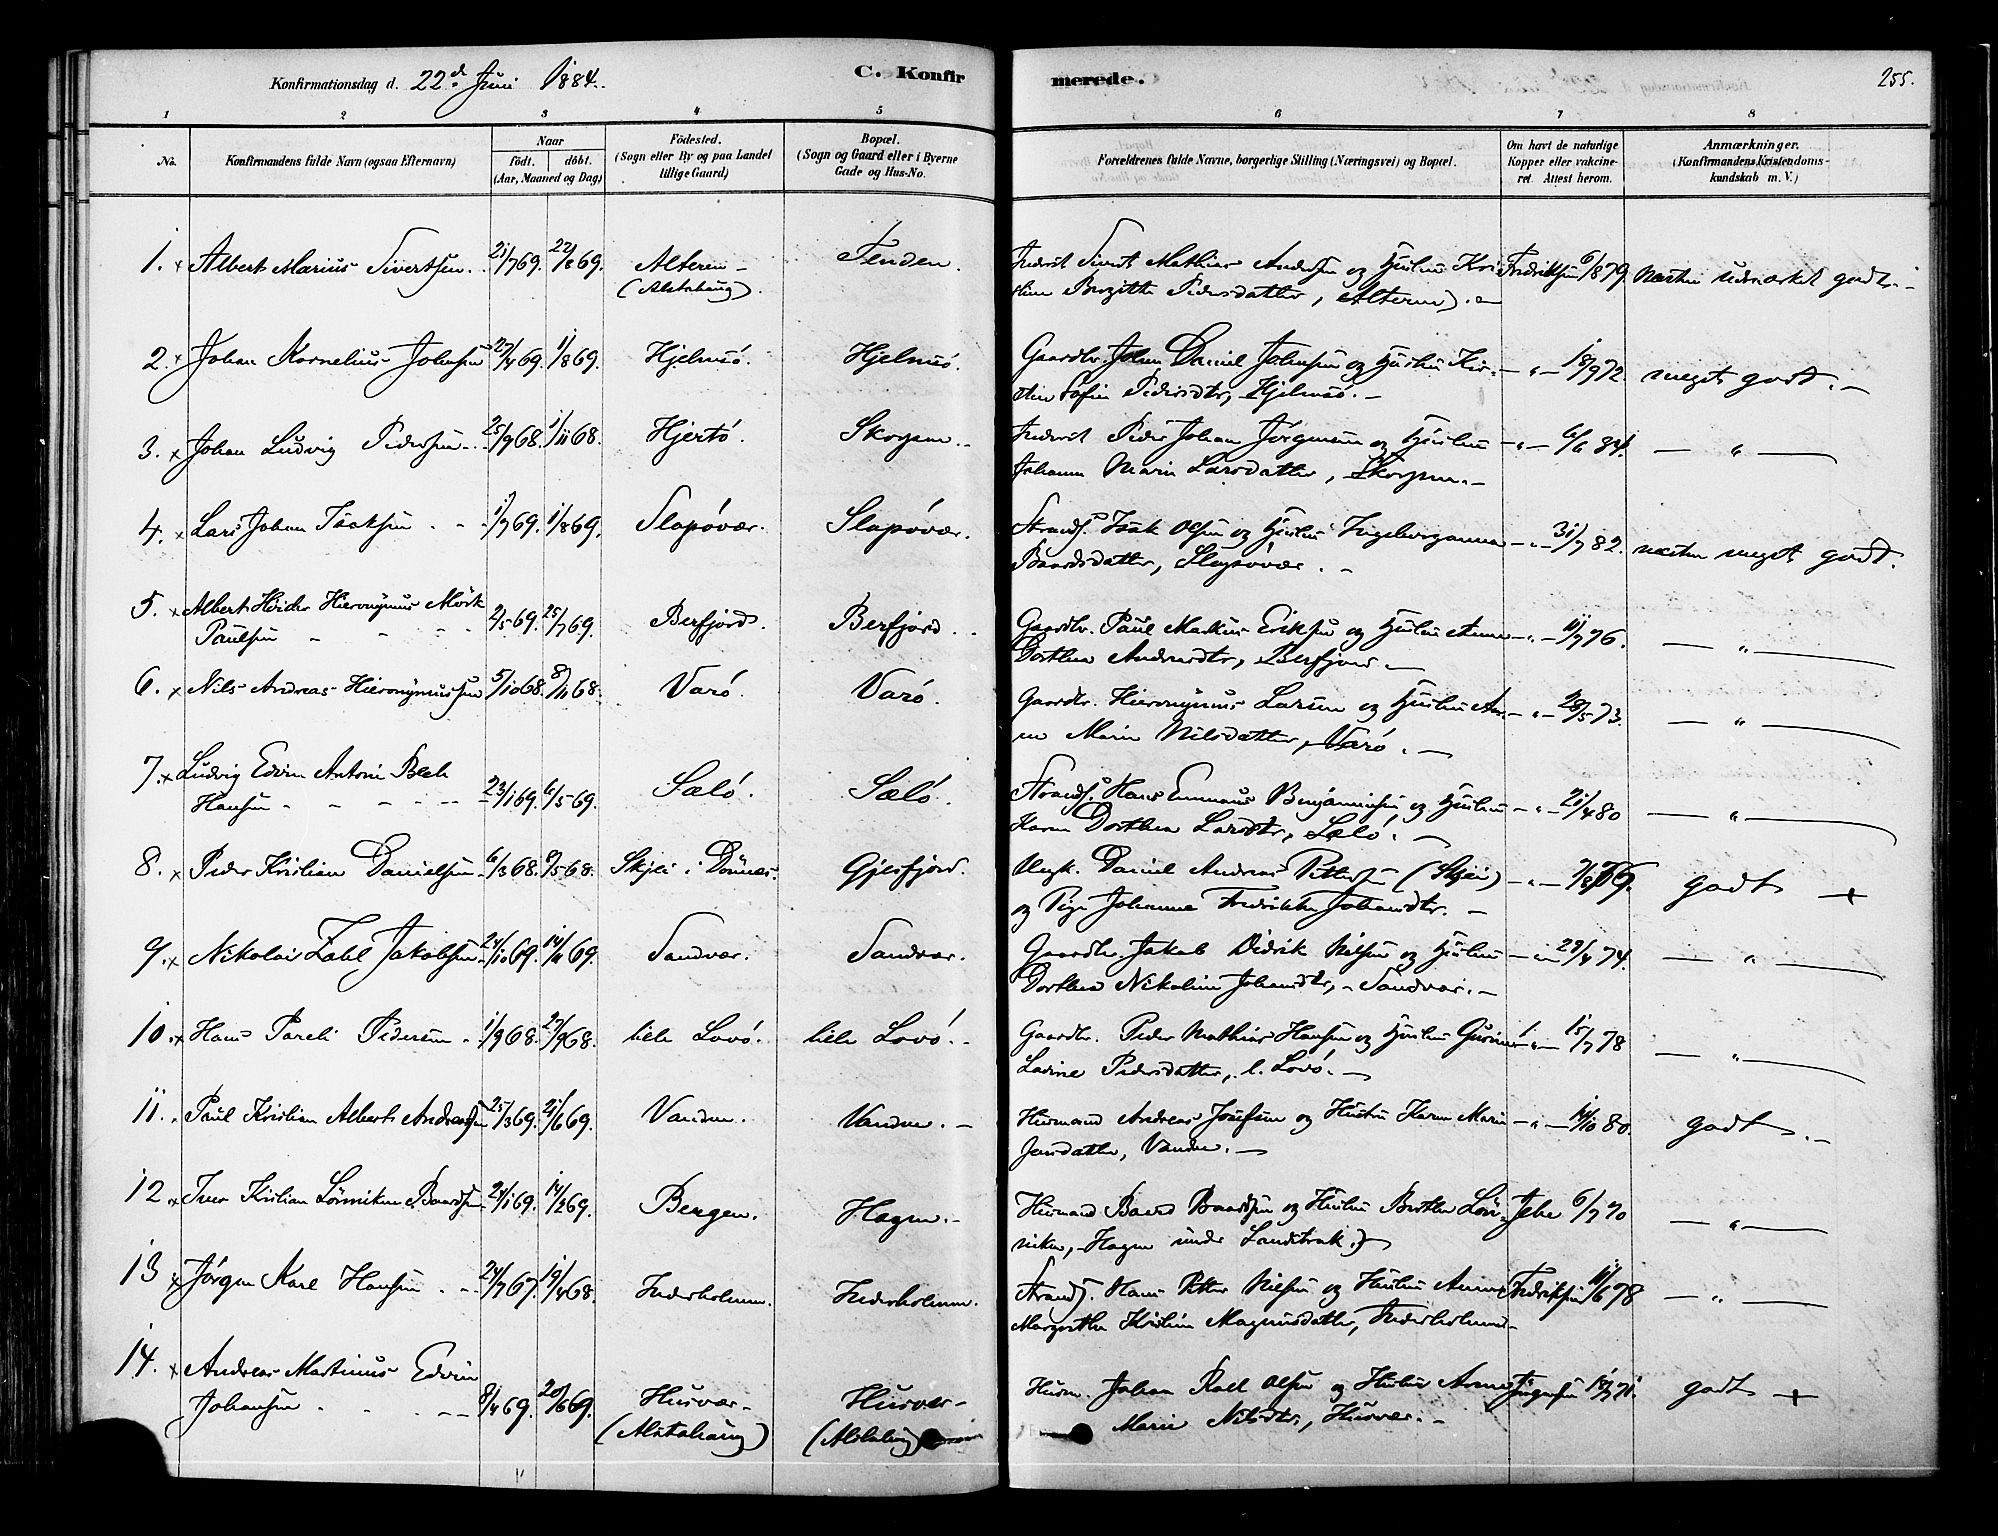 Konfirmationsdag d. 22d Juni 1884. C. Konfirmerede. 255.
1 2 3 4 5 6 7 8
No. Konfirmandens fulde Navn (ogsaa Efternavn) Naar födt. döbt. (Aar, Maaned og Dag) Födested. (Sogn eller By og paa Landet tillige Gaard) Bopæl. (Sogn og Gaard eller i Byerne Gade og Hus-No. Forældrenes fulde Navne, borgerlige Stilling (Næringsvei) og Bopæl. Om havt de naturlige Kopper eller vaccineret. Attest herom. Anmærkninger. (Konfirmandens Kristendomskundskab m. V.)
1. x Albert Marius Sivertsen. 21/7 69. 22/8 69. Alteren (Alstahaug). Tenden. Inderst Sivert Mathias Andersen og Hustru Kri-
stine Birgitte Pedersdatter, Alteren). Fredriksen 6/8 79. Næsten udmærket godt.
2. x Johan Kornelius Johnsen 27/4 69. 1/8 69. Hjelmsö. Hjelmsö. Gaardbr. Johan Daniel Johnsen og Hustru Kir-
stin Sofie Pedersdtr, Hjelmsö. — " — 18/9 72. meget godt.
3. x Johan Ludvig Pedersen 25/9 68. 1/11 68. Hjertö. Skorpen. Inderst Peder Johan Jörgensen og Hustru
Johanna Marie Larsdatter, Skorpen. — " — 6/6 84. — " —
4. x Lars Johan Isaksen 1/7 69. 1/8 69. Slapövær. Slapövær. Strands. Isak Olsen og Hustru Ingeborganna
Baardsdatter, Slapövær. — " — 31/7 82. næsten meget godt.
5. x Albert Höider Hieronymus Mörk
Paulsen 2/5 69. 25/7 69. Berfjord. Berfjord. Gaardbr. Paul Markus Eriksen og Hustru Anne
Dorthea Andersdtr, Berfjord. — " — 11/7 76. — " —
6. x Nils Andreas Hieronymussen 5/10 68. 8/11 68. Varö. Varö. Gaardbr. Hieronymus Larsen og Hustru An-
ne Marie Nilsdatter, Varö. — " — 28/5 73. — " —
7. x Ludvig Edvin Antoni Bech
Hansen 23/1 69. 6/5 69. Sælö. Sælö. Strands. Hans Emmaus Benjaminsen og Hustru
Karen Dorthea Larsdtr, Sælö. — " — 21/4 80 — " —
8. x Peder Kristian Danielsen 6/3 68. Skjei i Dönnes. Gjesfjord. Ungk. Daniel Andreas Pettersen (Skjei)
og Pige Johanna Fredrikke Johansdtr. — " — godt +
9. x Nikolai Zahl Jakobsen 24/10 69. 14/11 69. Sandvær. Sandvær. Gaardbr. Jakob Didrik Nilsen og Hustru
Dorthea Nikoline Johansdtr, Sandvær. — " — 29/4 74. — " —
10. x Hans Pareli Pedersen 1/9 68. 27/9 68. lille Lovö. lille Lovö. Gaardbr. Peder Mathias Hansen og Hustru
Lavine Pedersdatter, l. Lovö. — " — 15/7 78 — " —
11. Paul Kristian Albert Andreassen 25/3 69. 21/6 69. Vanden. Vanden. Husmand Andreas Josefsen og Hustru Karen Marie
Jensdatter, Vanden. — " — 14/10 80. godt.
12. x Iver Kristian Lönniken Baardsen 24/1 69. 14/2 69. Bergen. Hagen. Husmand Baard Baardsen og Hustru Birthe Lön-
niken, Hagen under Landstrak.) 6/7 70 — " —
13 x Jörgen Karl Hansen 24/7 67. 19/4 68. Inderholmen. Inderholmen. Strands. Hans Petter Nilsen og Hustru Anne
Margrethe Kristine Magnusdatter, Inderholmen. Fredriksen 11/6 78 — " —
14. x Andreas Martinus Edvin
Johansen 8/4 69. 20/6 69. Husvær (Alstahaug) Husvær (Alstahaug) Husm. Johan Olsen og Hustru Anne
Marie Nilsdtr, Husvær. Jörgensen godt +